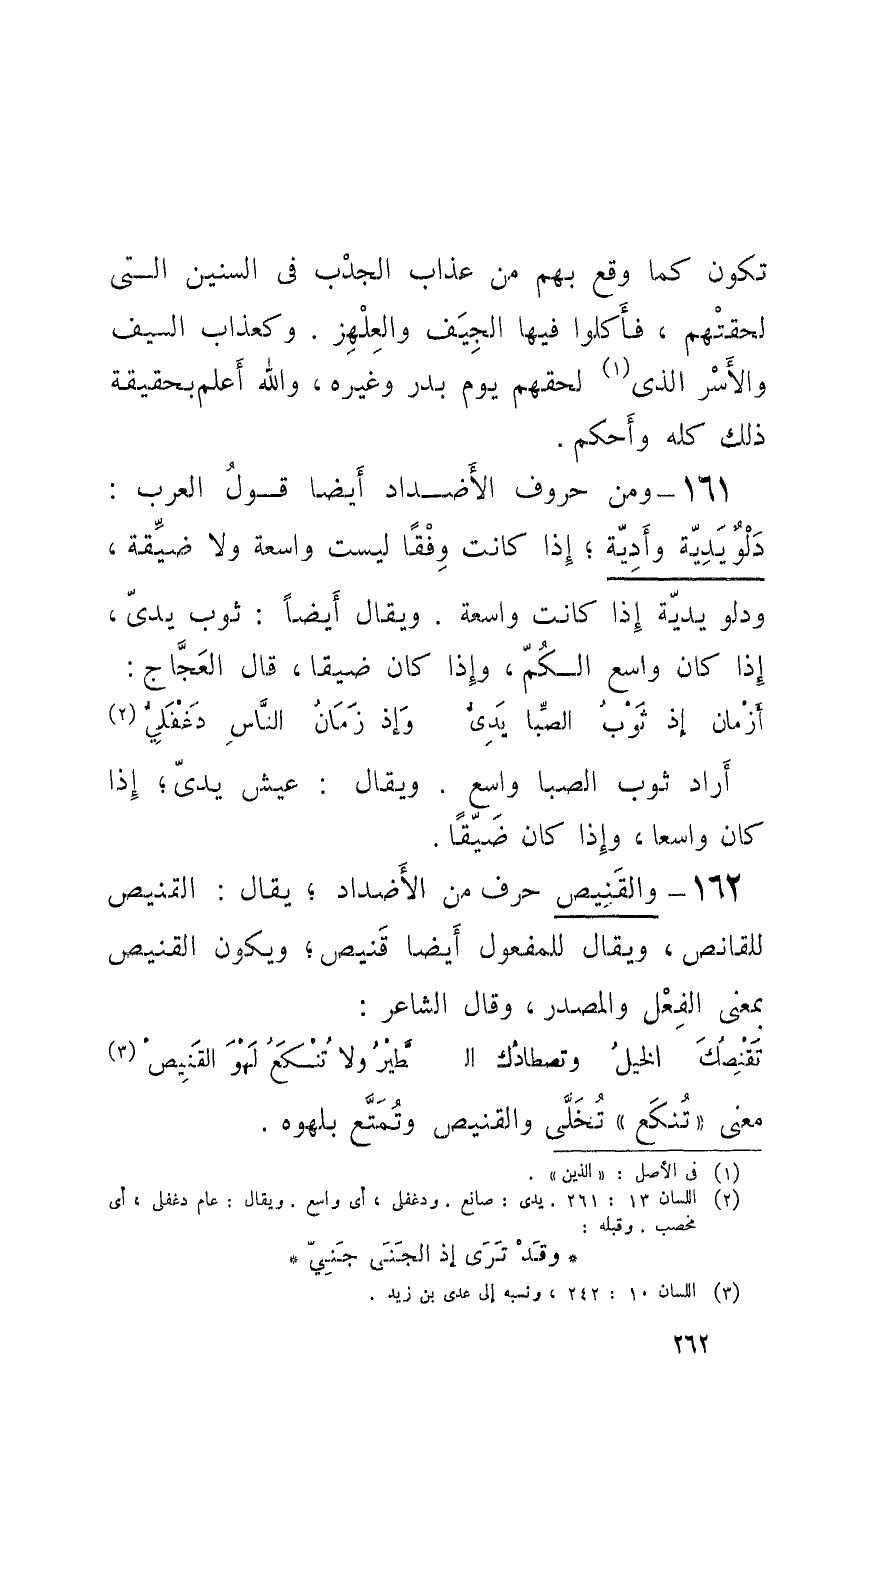 تكون كما وقع بهم من عذاب الجدْب فى السنين الـتى
لحقتْهم ، فـأَكلوا فيها الجِيَف والعِلْهِز . وكعذاب السيف
والأَسْر الذى(١) لحقهم يوم بدر وغيره ، والله أَعلم بحقيقة
ذلك كله وأَحكم .
١٦١ – ومن حروف الأَضـداد أَيضا قـولُ العرب :
دَلْوٌ يَدِيّة وأَدِيّة ؛ إِذا كانت وِفْقًا ليست واسعة ولا ضيِّقة ،
ودلو يديّة إِذا كانت واسعة . ويقال أَيضاً : ثوب يدىّ ،
إِذا كان واسع الـكُمّ ، وإِذا كان ضيقا ، قال العَجَّاج :
أَزْمان إذ ثَوْبُ الصِّبا يَدِىُّ وَإذ زَمَانُ النَّاسِ دَغْفَلِىُّ(٢)
أَراد ثوب الصبا واسع . ويقال : عيش يدىّ ؛ إِذا
كان واسعا ، وإِذا كان ضَيّقًا .
١٦٢ – والقَنِيص حرف من الأَضداد ؛ يقال : القنيص
للقانص ، ويقال للمفعول أَيضا قَنيص ؛ ويكون القنيص
بمعنى الفِعْل والمصدر ، وقال الشاعر :
تَقْنِصُكَ الخيلُ وتصطادُك الـ طَّيْرُ ولا تُنْـكَعُ لَهْوَ القَنِيصْ(٣)
معنى « تُنكَع » تُخَلَّى والقنيص وتُمَتَّع بلهوه .
(١) فى الأصل : « الذين » .
(٢) اللسان ١٣ : ٢٦١ . يدى : صانع . ودغفلى ، أى واسع . ويقال : عام دغفلى ، أى
مخصب . وقبله :
* وقَدْ تَرَى إذ الجَنَى جَنِىّ *
(٣) اللسان ١٠ : ٢٤٢ ، ونسبه إلى عدى بن زيد .
٢٦٢